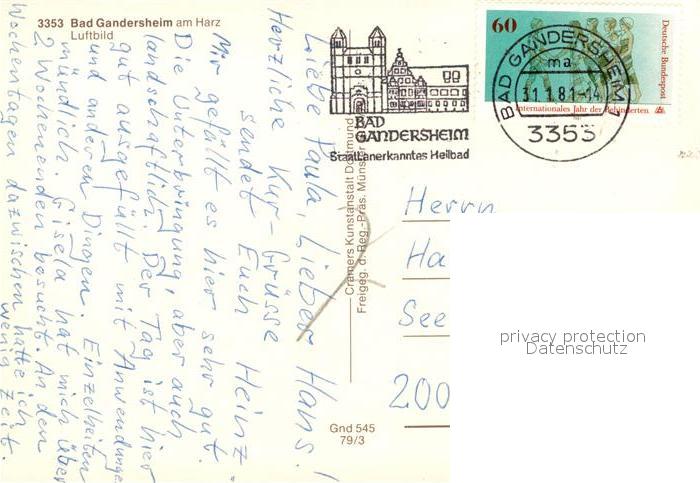 3353 Bad Gandersheim am Harz
Luftbild
Liebe Paula, Lieber Hans!
Herzliche Kur-Grüsse
sendet Euch Heinz.
Mir gefällt es hier sehr gut.
Die Unterbringung, aber auch
landschaftlich. Der Tag ist hier
gut ausgefüllt mit Anwendungen
und anderen Dingen. Einzelheiten
mündlich. Gisela hat mich über
2 Wochenenden besucht. An den
Wochentagen dazwischen hatte ich
wenig Zeit.
Cramers Kunstanstalt Dortmund
Freigeg. d. Reg.-Präs. Münster
Gnd 545
79/3
BAD
GANDERSHEIM
Staatl. anerkanntes Heilbad
60
Deutsche Bundespost
Internationales Jahr der Behinderten
BAD GANDERSHEIM
ma
31.1.81-14
3353
Herrn
Ha
See
200
privacy protection
Datenschutz